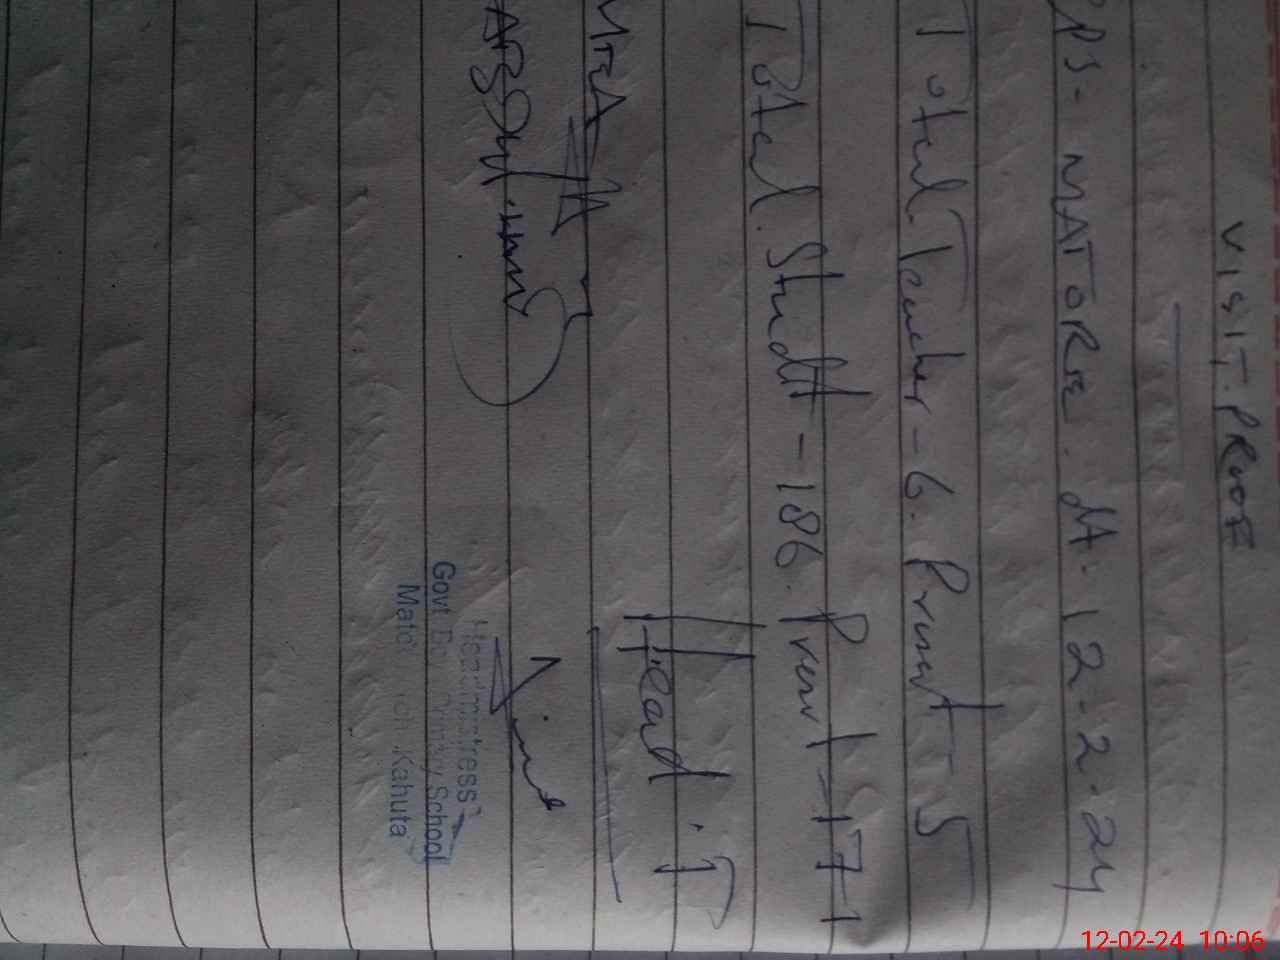 VISIT. PROOF
PS- MATORE. dt. 12-2-24
Total Teacher - 6. Present - 5
Total Studtt - 186. Prent - 171
Head . T
MEA
Headmistress
Govt. Primary School
Kahuta
12-02-24 10:06